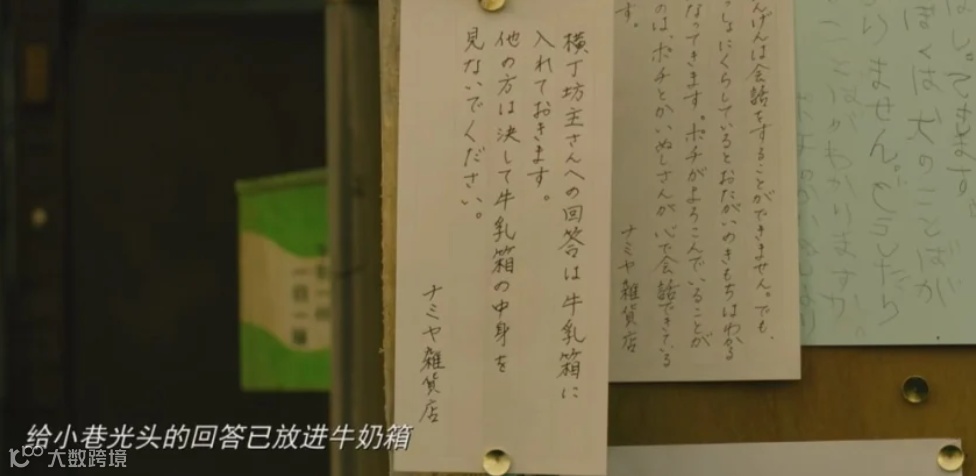 横丁坊主さんへの回答は牛乳箱に
入れておきます。
他の方は決して牛乳箱の中身を
見ないでください。
ナミヤ雑貨店
んげんは会話をすることができません。でも、
っしょにくらしているとおたがいのきもちはわかる
なってきます。ポチがよろこんでいることが
のは、ポチとかいぬしさんが心で会話できている
す。
ナミヤ雑貨店
ぼくは犬のことばが
りません。どうしたら
給小巷光头的回答已放进牛奶箱
大数跨境